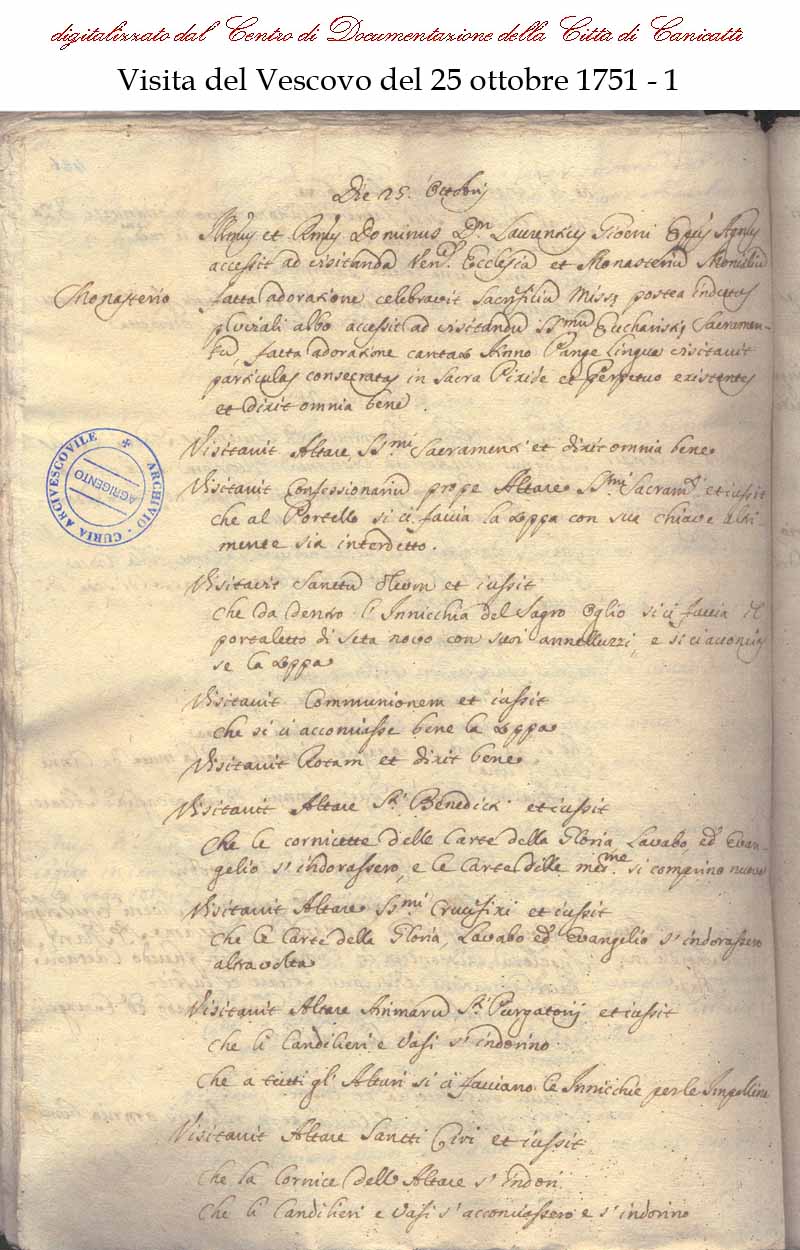 digitalizzato dal Centro di Documentazione della Città di Canicattì
Visita del Vescovo del 25 ottobre 1751 - 1
Die 25. Octobris
Illmus et Rmus Dominus Dn Laurentius Gioeni Epus Agnus
accessit ad visitanda Venem Ecclesia et Monasteriu Monialiu
Monasterio
facta adoratione celebravit Sacrificiu Missę postea indutus
pluviali albo accessit ad visitandu SSmu Eucharistię Sacramen-
tu, facta adoratione cantato Hinno Pange lingua visitavit
particulas consecratas in Sacra Pixide et perpetuo existentes
et dixit omnia bene.
ARCHIVIO - CURIA ARCIVESCOVILE
AGRIGENTO
Visitavit Altare SSmi Sacramenti et dixit omnia bene
Visitavit Confessionariu prope Altare SSmi Sacramti et iussit
che al Portello si ci faccia la Loppa con sua chiave altri-
mente sia interdetto.
Visitavit Sanctu Oleum et iussit
che da dentro l'Innicchia del Sagro Oglio si ci faccia il
portaletto di seta novo con suoi annelluzzi, e si ci acconcias
se la Loppa
Visitavit Communionem et iussit
che si ci acconciasse bene la Loppa
Visitavit Rotam et dixit bene
Visitavit Altare Sti Benedicti et iussit
Che le cornicette delle Carte della Gloria, Lavabo ed Evan-
gelio s'indorassero, e le Carte delle mesme si comprino nuove
Visitavit Altare SSmi Crucifixi et iussit
Che le Carte della Gloria, Lavabo ed Evangelio s'indorassero
altra volta
Visitavit Altare Animaru Sti Purgatorij et iussit
Che li Candilieri e Vasi s'indorino
Che a tutti gl'Altari si ci facciano le Innicchie per le Impolline
Visitavit Altare Sancti Ciri et iussit
Che la Cornice dell'Altare s'indori
Che li Candilieri e Vasi s'acconciassero e s'indorino